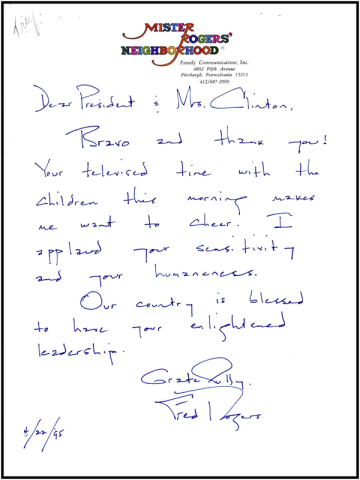 MISTER
ROGERS'
NEIGHBORHOOD
Family Communications, Inc.
4802 Fifth Avenue
Pittsburgh, Pennsylvania 15213
412/687-2990
Dear President & Mrs. Clinton,
Bravo and thank you!
Your televised time with the
children this morning makes
me want to cheer! I
applaud your sensitivity
and your humaneness.
Our country is blessed
to have your enlightened
leadership.
Gratefully,
Fred Rogers
4/22/95